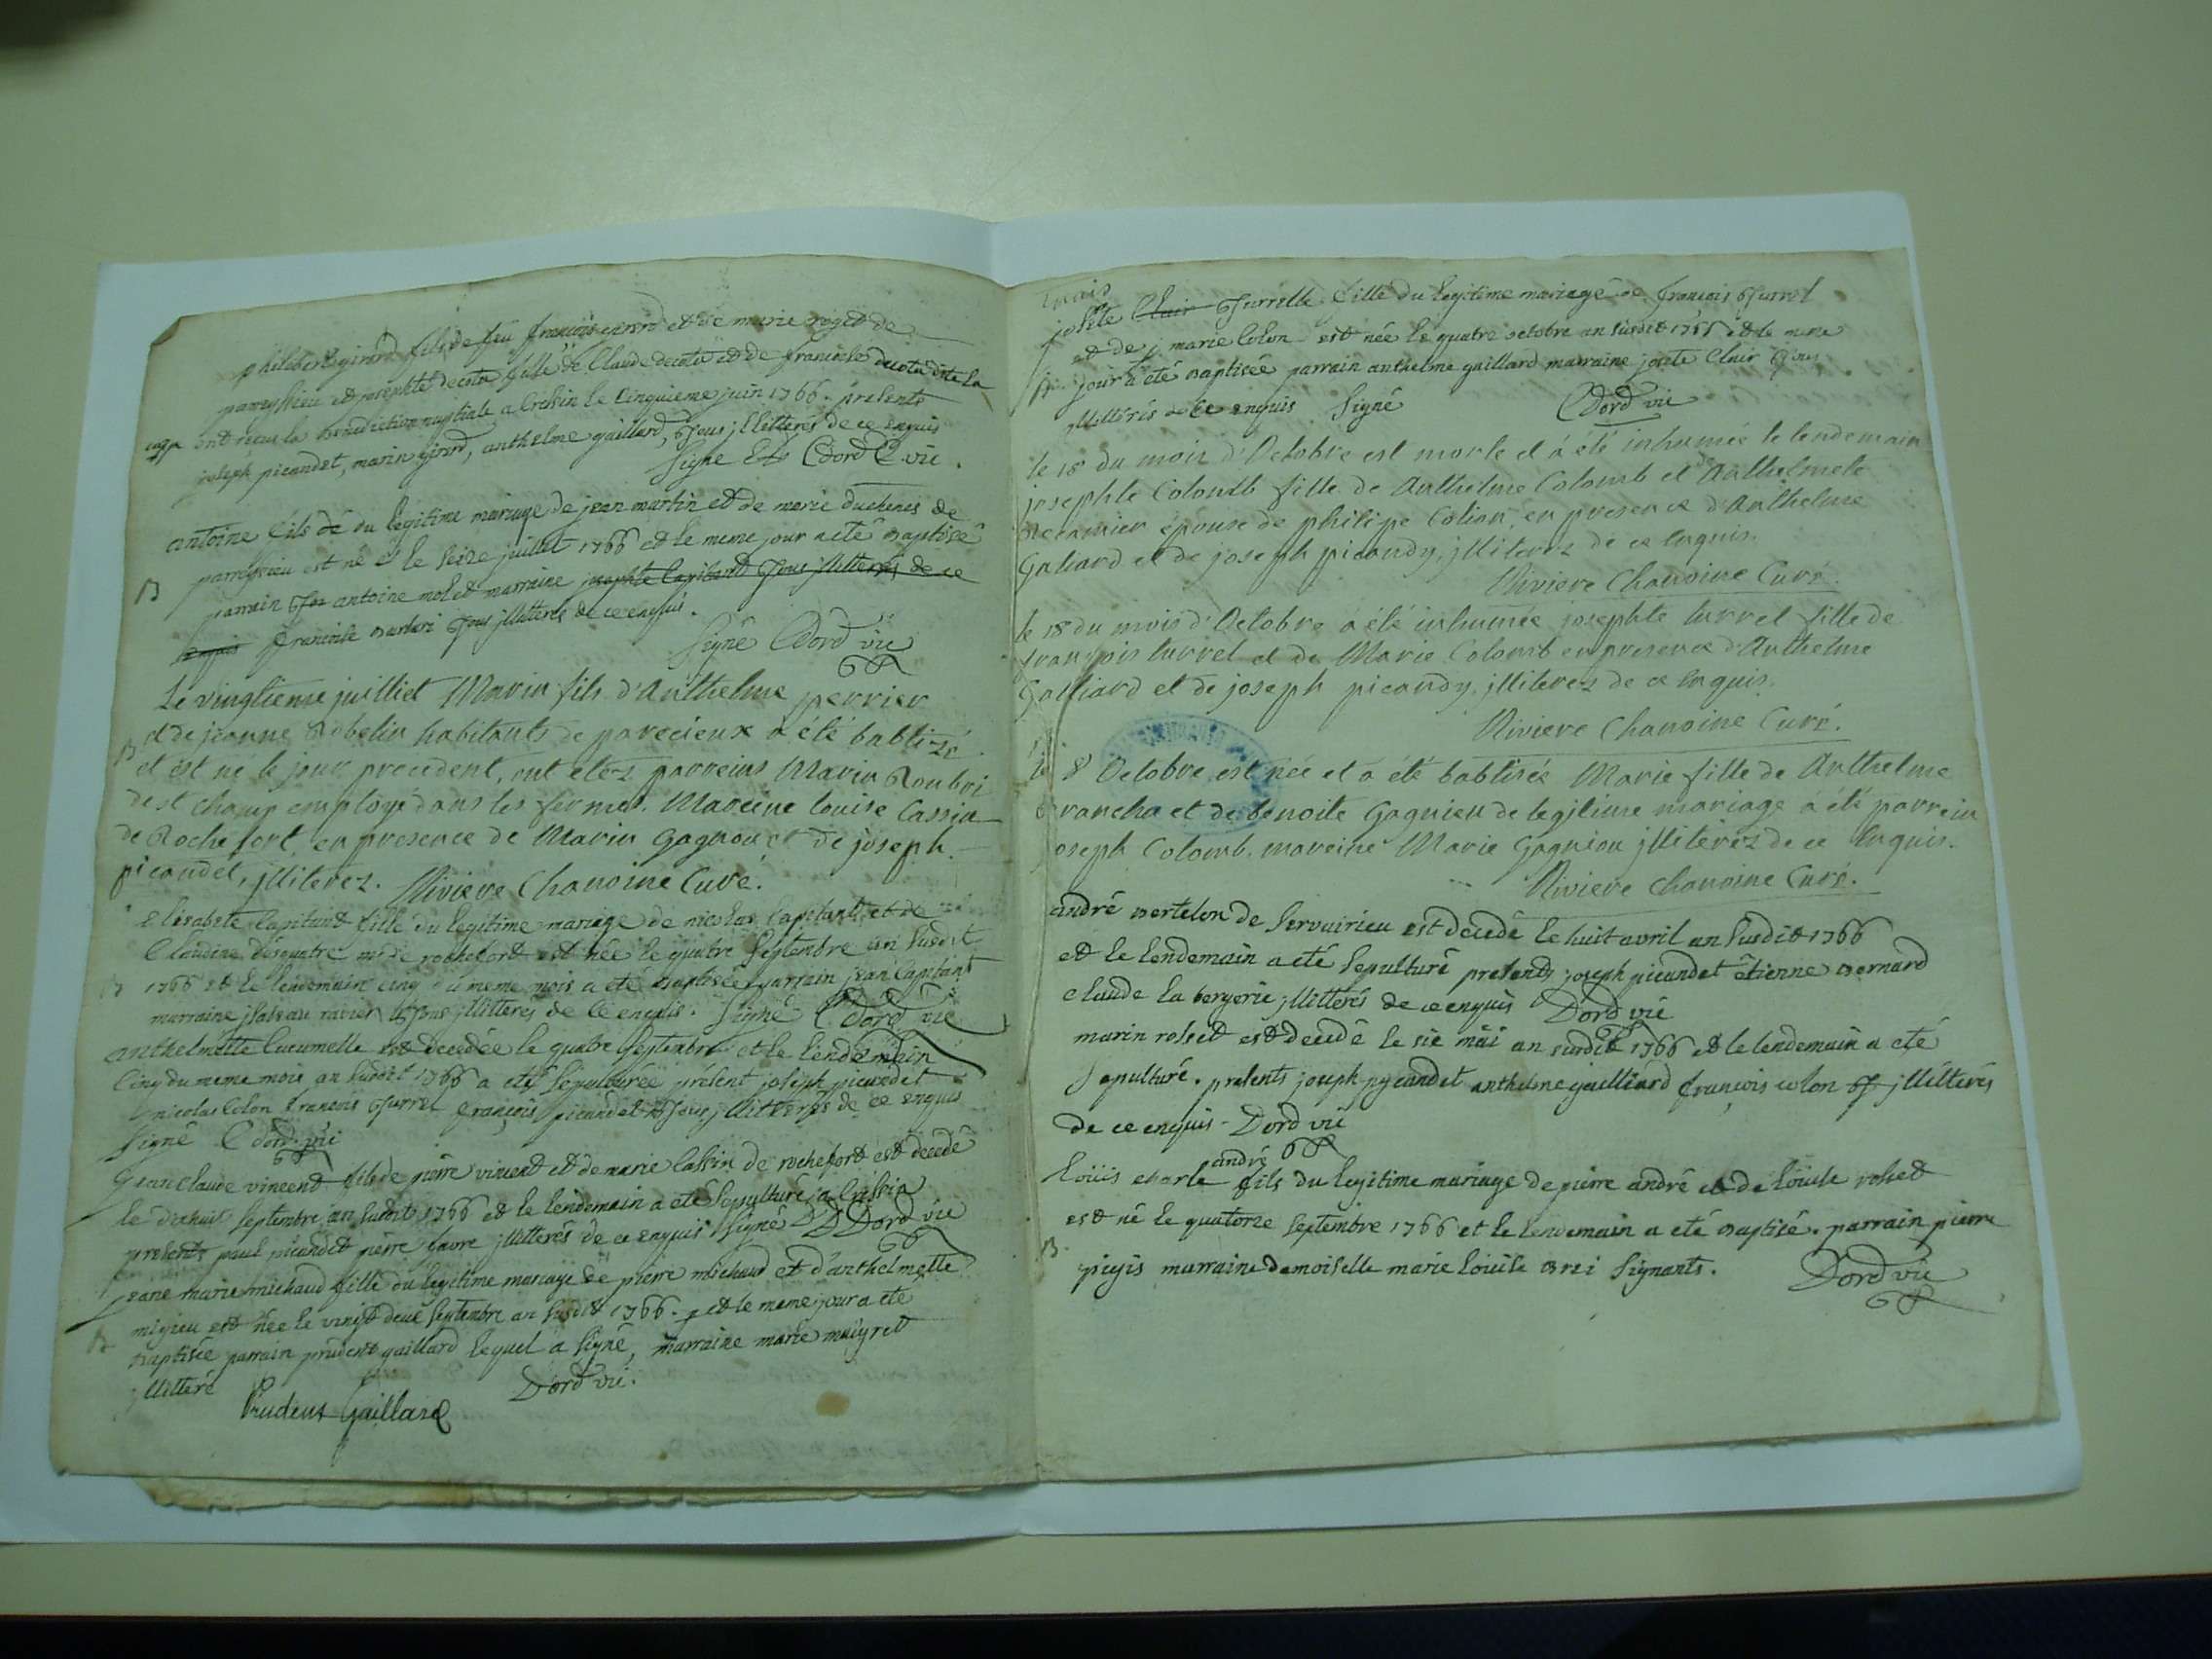 philibert girard fils de feu françois girard et de marie roget de
parveyssieu et josephte decota fille de Claude decota et de francoise decota dite la
ont recus la benediction nuptiale a Cressin le Cinquieme juin 1766. présents
joseph picandet, marin girerd, anthelme gaillard, tous jllitterés de ce enquis
signé Dord vic.
antoine fils de du legitime mariage de jean martin et de marie duchenes de
parvessieu est né le seize juillet 1766 et le meme jour a eté baptisé
B parrain antoine molet marraine josephte Capitant tous jllitterés de ce
enquis francoise barberi tous jllitterés de ce enquis.
signé Dord vic
Le vingtieme juilliet Marin fils d'Anthelme perrier
B et de jeanne Robelin habitants de parecieux a été babtizé
et est né le jour precedent, ont etez parreins Marin Roubri
de st Champ employé dans les fermes. Mareine louise Cassin
de Rochefort, en presence de Marin Gagnou et de joseph
picandet, jlliterez. Riviere Chanoine Curé.
Elisabete Capitant fille du legitime mariage de nicolas Capitant et de
Claudine Désquatre de rochefort est née le quatre septembre an susdit
B 1766 et le lendemain cinq du meme mois a eté baptisée parrain jean Capitant
marraine jsabeau ravier tous jllitterés de ce enquis. signé Dord vic
anthelmette Cucumelle est decedée le quatre septembre et le lendemain
Cinq du meme mois an susdit 1766 a eté sepulturée présent joseph picandet
nicolas Colon françois Turrel françois picandet tous jllitterés de ce enquis
signé Dord vic
jean Claude vincend fils de pierre vincent et de marie Cassin de rochefort est decedé
le dixhuit septembre an susdit 1766 et le lendemain a eté sepulturé a Cressin
presents paul picandet pierre favre jllitterés de ce enquis signé Dord vic
jeane marie michaud fille du legitime mariage de pierre michaud et d'anthelmette
migieu est née le vingt deux septembre an susdit 1766. et le meme jour a eté
B baptisée parrain prudent gaillard lequel a signé, marraine marie maigret
jllitteré Dord vic.
Prudent Gaillard
mais
josete Clair Turrelle fille du legitime mariage de françois Turrel
et de j. marie Colon est née le quatre octobre an susdit 1766 et le meme
B jour a eté baptisée parrain anthelme gaillard marraine josete Clair
jllitterés de ce enquis signé Dord vic
le 18 du mois d'Octobre est morte et a été inhumée le lendemain
josephte Colomb fille de Anthelme Colomb et de Anthelmete
Recamier épouse de philipe Colian, en presence d'Anthelme
Galiard et de joseph picandy, jlliterez de ce enquis.
Riviere Chanoine Curé.
le 18 du mois d'Octobre a été inhumée josephte turrel fille de
françois turrel et de Marie Colomb en presence d'Anthelme
Galliard et de joseph picandy, jlliterez de ce enquis.
Riviere Chanoine Curé.
le 8 Octobre est née et a été babtisée Marie fille de Anthelme
Francha et de benoite Gagnieu de legitime mariage a été parrein
joseph Colomb, mareine Marie Gagniou jlliterez de ce enquis.
Riviere Chanoine Curé.
andré bertelon de servuirieu est decedé le huit avril an susdit 1766
et le lendemain a eté sepulturé presents joseph picandet étienne bernard
claude la bergerie jllitterés de ce enquis Dord vic
marin rosset est decedé le sic mai an susdit 1766 et le lendemain a eté
sepulturé. presents joseph pycandet anthelme gailliard françois colon jllitterés
de ce enquis - Dord vic
andré
Louis charle fils du legitime mariage de pierre andré et de Louise rosset
est né le quatorze septembre 1766 et le lendemain a eté baptisé. parrain pierre
B pugis marraine demoiselle marie Louise brei signants. Dord vic